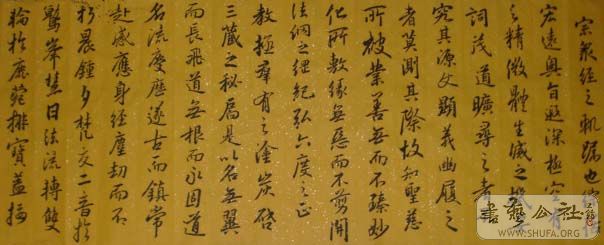 宗眾經之軌躅也綜括
宏遠奧旨遐深極空有
之精微體生滅之機
詞茂道曠尋之者
究其源文顯義幽履之
者莫測其際故知聖慈
所被業善無而不臻妙
化所敷緣無惡而不剪開
法網之經紀弘六度之正
教拯群有之塗炭啓
三藏之秘扃是以名無翼
而長飛道無根而永固道
名流慶歷遂古而鎮常
赴感應身經塵劫而不
朽晨鍾夕梵交二音於
鷲峯慧日法流轉雙
輪於鹿苑排寶蓋接
書藝公社
WWW.SHUFA.ORG